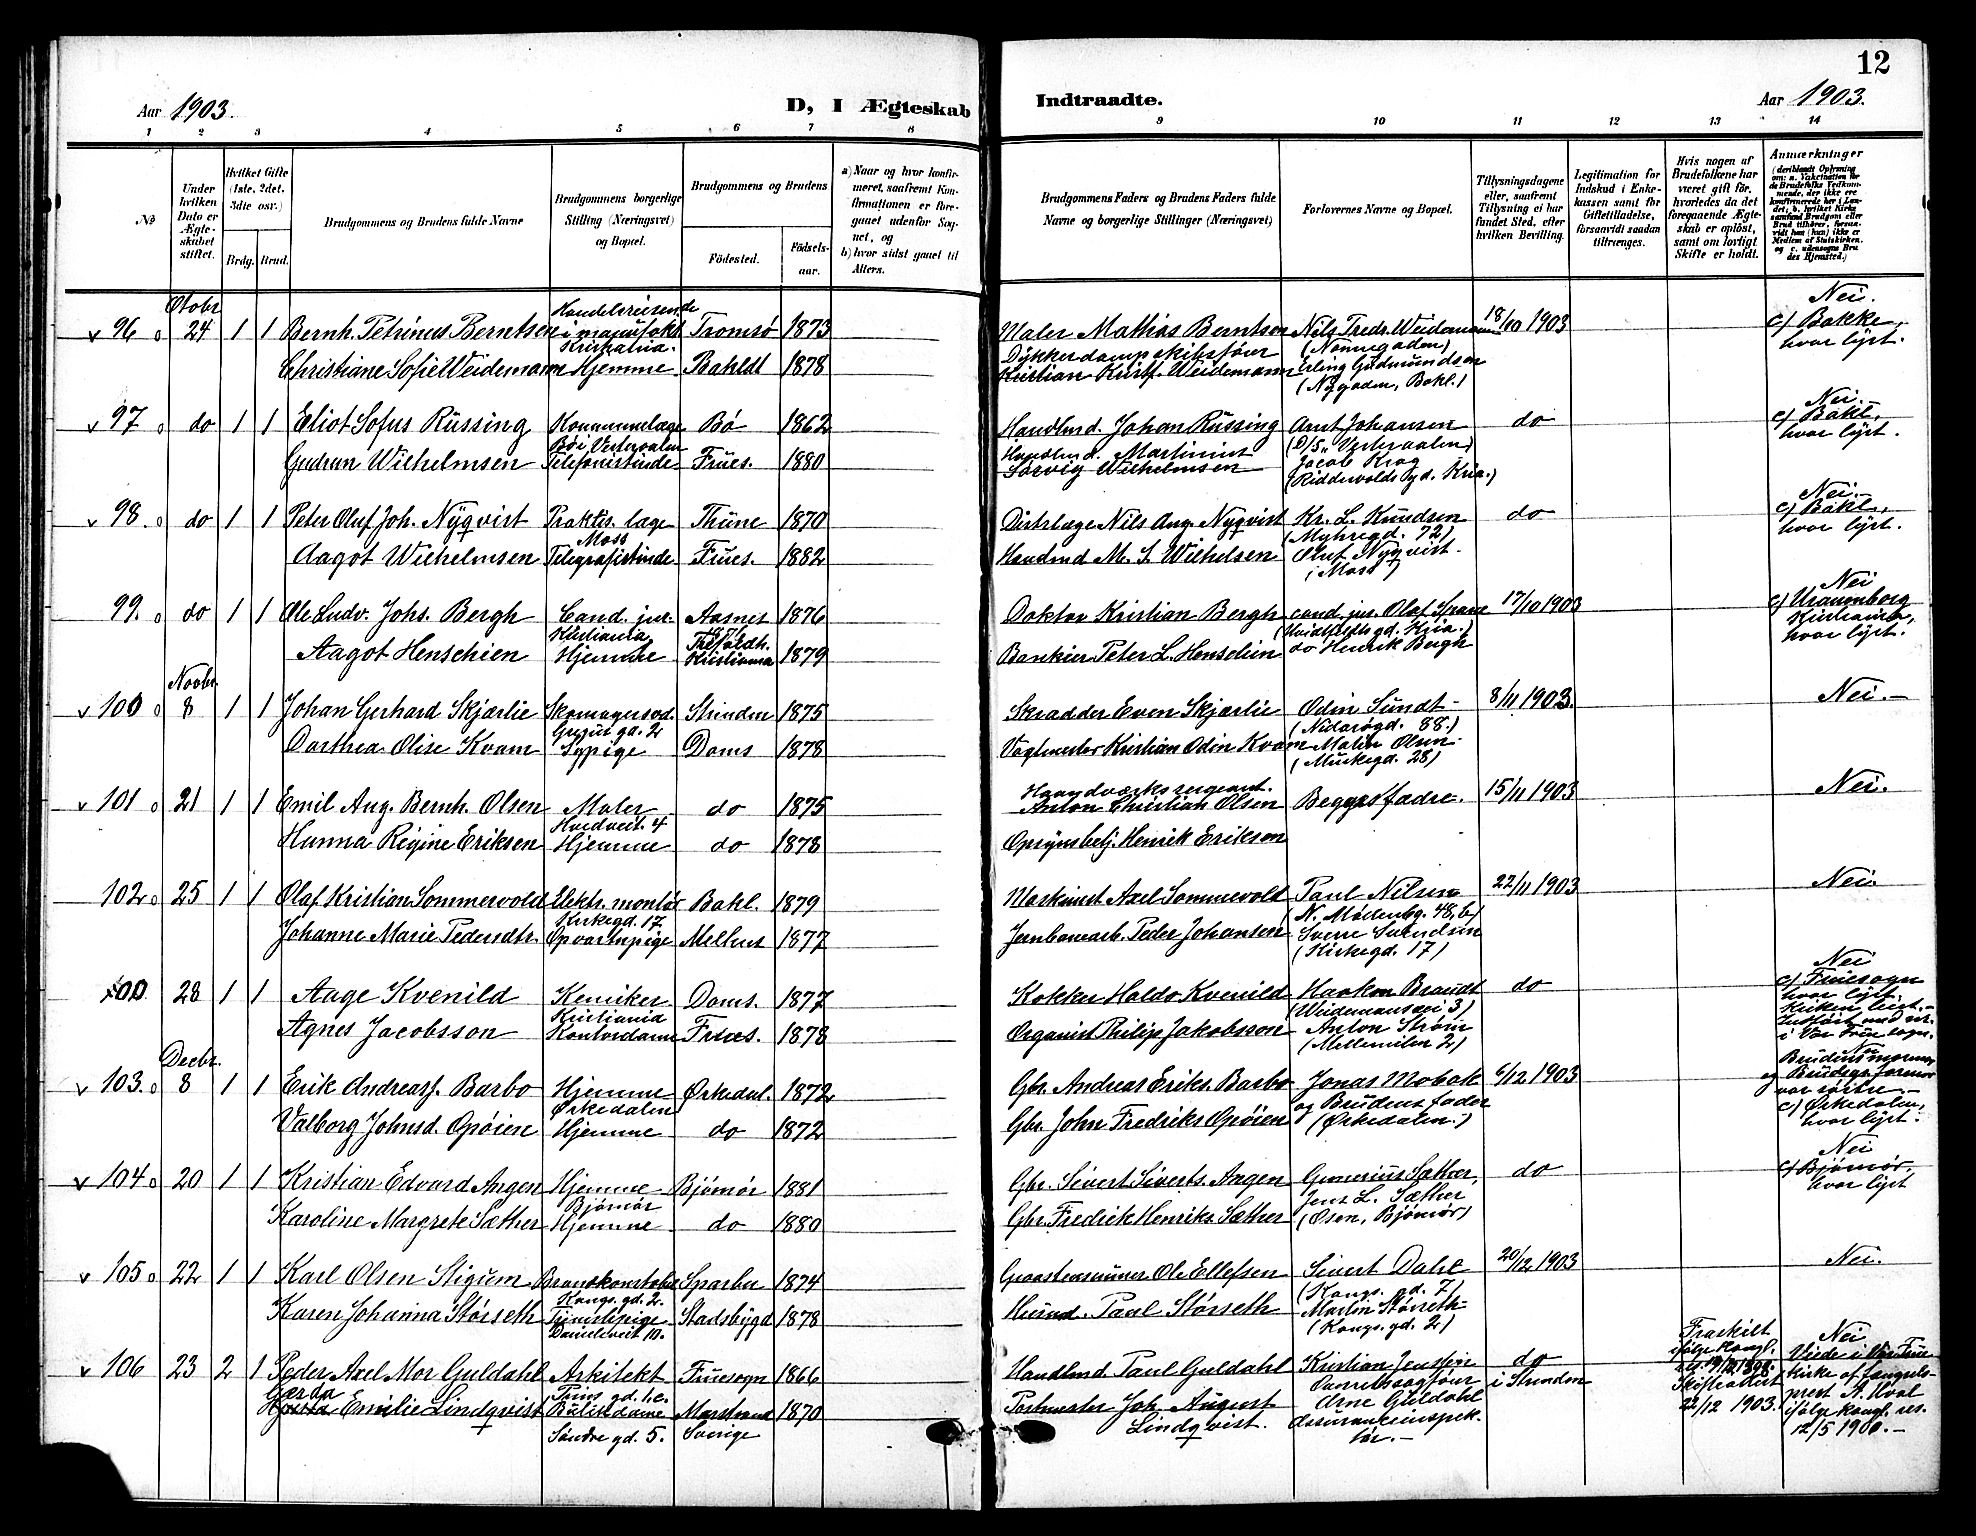 12
Aar 1903.
D, I Ægteskab Indtraadte.
Aar 1903.
1 2 3 4 5 6 7 8 9 10 11 12 13 14
No
Under hvilken Dato er Ægteskabet stiftet.
Hvilket Gifte (1ste, 2det, 3die osv.)
Brdg. Brud.
Brudgommens og Brudens fulde Navne
Brudgommens borgerlige Stilling (Næringsvei) og Bopæl.
Brudgommens og Brudens
Födested.
Födselsaar.
a) Naar og hvor konfirmeret, saafremt Konfirmationen er foregaaet udenfor Sognet, og
b) hvor sidst gaaet til Alters.
Brudgommens Faders og Brudens Faders fulde Navne og borgerlige Stillinger (Næringsvei)
Forlovernes Navne og Bopæl.
Tillysningsdagene eller, saafremt Tillysning ei har fundet Sted, efter hvilken Bevilling.
Legitimation for Indskud i Enkekassen samt for Giftetilladelse, forsaavidt saadan tiltrænges.
Hvis nogen af Brudefolkene har været gift før, hvorledes da det foregaaende Ægteskab er oplöst, samt om lovligt Skifte er holdt.
Anmærkninger
Octobr
v 96 24 1 1 Bernh. Petrinus Berntsen Handelsreisende i manufakt. Kristiania. Tromsø 1873 Maler Mathias Berntsen Nils Fredr. Weidemann (Nonnegaden) 18/10 1903 Nei. c) Bakke, hvor lyst.
Christiane Sofie Weidemann Hjemme Bakldt 1878 Dykkerdampskibsfører Kristian Krist. Weidemann Erling Gudmundsen (Nygaden, Bakl.)
v 97 do 1 1 Eliot Sofus Rüssing Kommunelæge Bø i Vesteraalen Bø 1862 Handlmd. Johan Rüssing Arnt Johansen (D/S "Vesteraalen) do Nei. c) Bakl., hvor lyst.
Gudrun Wilhelmsen Telefonistinde Frues. 1880 Handlmd. Martinius Wilhelmsen Jacob Krog (Riddervolds gd. Kria.)
v 98. do 1 1 Peter Oluf Joh. Nyqvist Praktis. læge Moss Thüne 1870 Distslæge Nils Aug. Nyqvist Kr. L. Knudsen (Myhregd. 72) do Nei. c) Bakl, hvor lyst.
Aagot Wilhelmsen Telegrafistinde Frues. 1882 Handmd M. S. Wilhelsen Oluf Nyqvist. i Moss)
99. do 1 1 Ole Ludv. Johs. Bergh Cand. jur. Kristiania Aasnes 1876 Doktor Kristian Bergh cand. jur. Olaf 17/10 1903 Nei c) Uranienborg Kristiania, hvor lyst.
Aagot Henschien Hjemme Kristiania 1879 Bankier Peter L. Henschien do Henrik Bergh
Novbr.
v 100 8 1 1 Johan Gerhard Skjærlie Skomagersvd. gd. 2 Strinden 1875 Skrædder Even Skjærlie Odin Sundt (Nidarøgd. 88.) 8/11 1903. Nei.
Dorthea Olise Kvam Sypige Doms 1878 Vagtmester Kristian Odin Kvam Olsen (Munkegd. 28)
v 101 21 1 1 Emil Aug. Bernh. Olsen Maler Hvedveit. 4 do 1875 Haandværkssergeant. Anton Christian Olsen Begges fædre. 15/11 1903 Nei.
Hanna Regine Eriksen Hjemme do 1878 Opsynsbetj. Henrik Eriksen
102 25 1 1 Olaf Kristian Sommervold Elektr. montør Kirkegd. 17 Bakl. 1879 Maskinist Axel Sommervold Paul Nilsen (N. Møllenbg. 48, b) 22/11 1903 Nei.
Johanne Marie Pedersdtr. Opvartnpige Melhus 1877 Jernbanearb. Peder Johansen Sverre Svendsen (Kirkegd. 17)
28 1 1 Aage Kvenild Kemiker Kristiania Doms. 1877 Kokker Haldo Kvenild Haakon Brandt (Weidemansvei 3) do Nei c) Fruesogn hvor lyst.
Agnes Jacobsson Kontordame Frues. 1878 Organist Philip Jakobsson Anton Strøm (Mellemilen 2)
Decbr.
v 103. 8 1 1 Erik Andreasf. Barbo Hjemme Ørkedalen Ørkedal. 1872 Gbr. Andreas Eriks. Barbo Jonas Mobak og Brudens fader (Ørkedalen.) 6/12 1903 Nei c) Ørkedalen, hvor lyst.
Valborg Johnsd. Opøien Hjemme do 1872 Gbr. John Fredriks Opøien
v 104 20 1 1 Kristian Edvard Aagen Hjemme Bjømør Bjømør 1881 Gbr. Sivert Siverts. Aagen Gunerius Sæther, Jens L. Sæther (Osen, Bjømør) do Nei c) Bjømør, hvor lyst
Karoline Margrete Sæther Hjemme do 1880 Gbr. Fredrik Henriks. Sæther
v 105 22 1 1 Karl Olsen Stigum Brandkonstabel Kongs. gd. 2. Sparbu 1874 Ole Ellefsen Sivert Dahl (Kongs. gd. 7) 20/12 1903 Nei.
Karen Johanna Størseth Danielsveit 10. Stadsbygd 1878 Husmd. Paul Størseth Martin Størseth (Kongs. gd. 2)
v 106 23 2 1 Peder Axel Mor Guldahl Arkitekt Fruesogn 1866 Handlmd Paul Guldahl Kristian Jenssen Arne Guldahl assuranceinspektør. do i Strinden Fraskilt ifølge kongl. 22/12 1903. Nei Viede i Vor Frue kirke af fængselsprest A. Hval ifølge kongl. res. 12/5 1900.
Gerda Emilie Lindqvist Søndre gd. 5. Marstrand Sverige 1870 Postmester Joh. August Lindqvist.